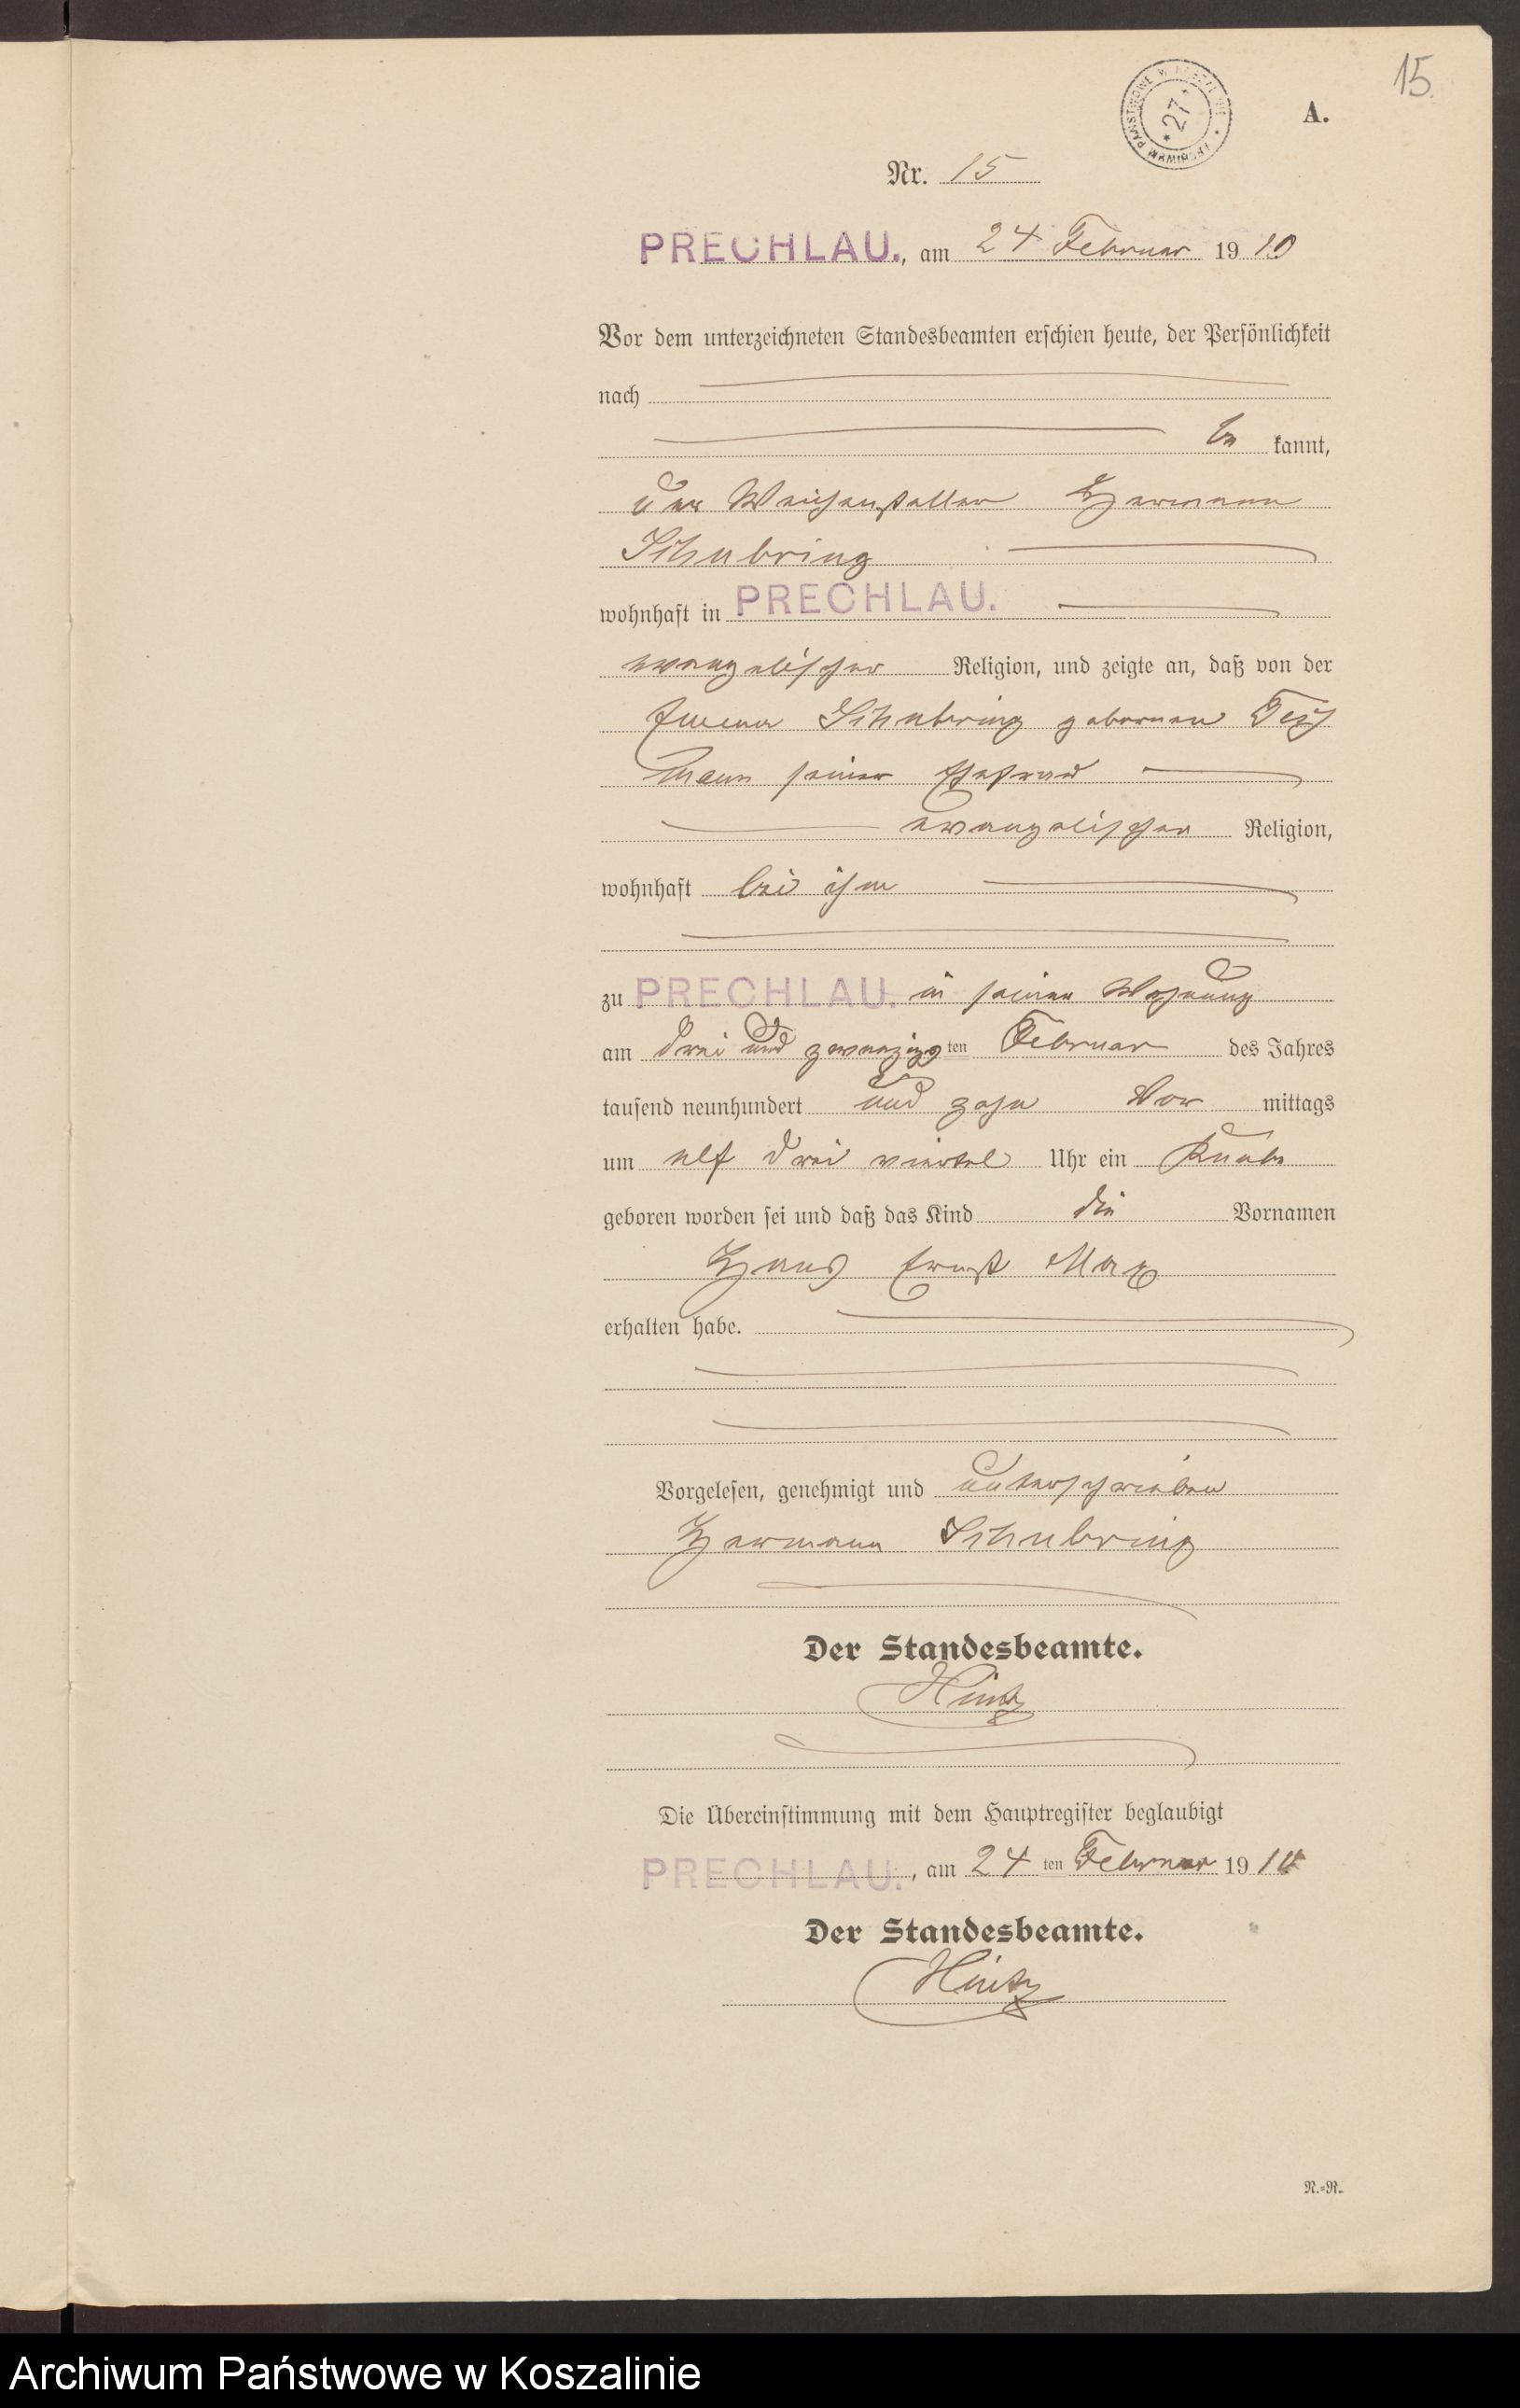 15.
ARCHIWUM PAŃSTWOWE W
* 27 *
A.
Nr. 15
PRECHLAU., am 24 Februar 1910
Vor dem unterzeichneten Standesbeamten erschien heute, der Persönlichkeit
nach
be kannt,
der Weichensteller Hermann
Schubring
wohnhaft in PRECHLAU.
evangelischer Religion, und zeigte an, daß von der
Schubring geborenen
mann seiner Ehefrau
evangelischen Religion,
wohnhaft bei ihm
zu PRECHLAU. in seiner Wohnung
am drei und zwanzigsten Februar des Jahres
tausend neunhundert und zehn Vor mittags
um elf drei viertel Uhr ein Knabe
geboren worden sei und daß das Kind die Vornamen
Hans Ernst Max
erhalten habe.
Vorgelesen, genehmigt und unterschrieben
Hermann Schubring
Der Standesbeamte.
Hintz
Die Übereinstimmung mit dem Hauptregister beglaubigt
PRECHLAU., am 24 ten Februar 1910
Der Standesbeamte.
Hintz
N.=R.
Archiwum Państwowe w Koszalinie